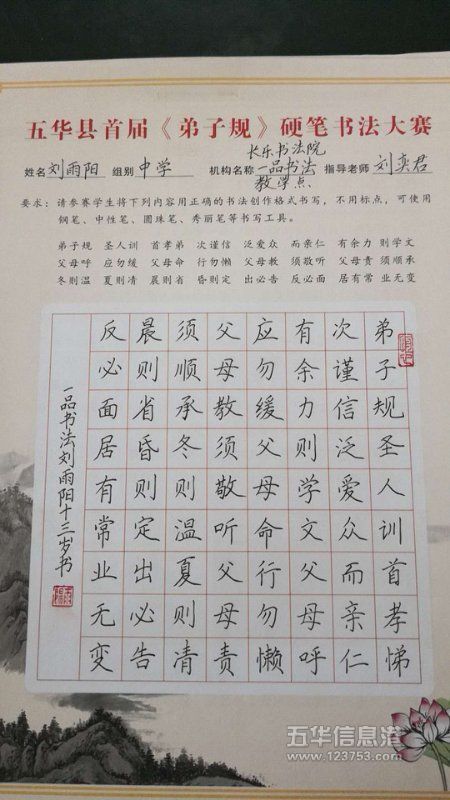 五华县首届《弟子规》硬笔书法大赛
姓名 刘雨阳 组别 中学 机构名称 长乐书法院 一品书法 教学点 指导老师 刘奕君
要求：请参赛学生将下列内容用正确的书法创作格式书写，不用标点，可使用
钢笔、中性笔、圆珠笔、秀丽笔等书写工具。
弟子规 圣人训 首孝弟 次谨信 泛爱众 而亲仁 有余力 则学文
父母呼 应勿缓 父母命 行勿懒 父母教 须敬听 父母责 须顺承
冬则温 夏则凊 晨则省 昏则定 出必告 反必面 居有常 业无变
弟子规圣人训首孝悌
次谨信泛爱众而亲仁
有余力则学文父母呼
应勿缓父母命行勿懒
父母教须敬听父母责
须顺承冬则温夏则凊
晨则省昏则定出必告
反必面居有常业无变
一品书法刘雨阳十三岁书
五华信息港
www.123753.com